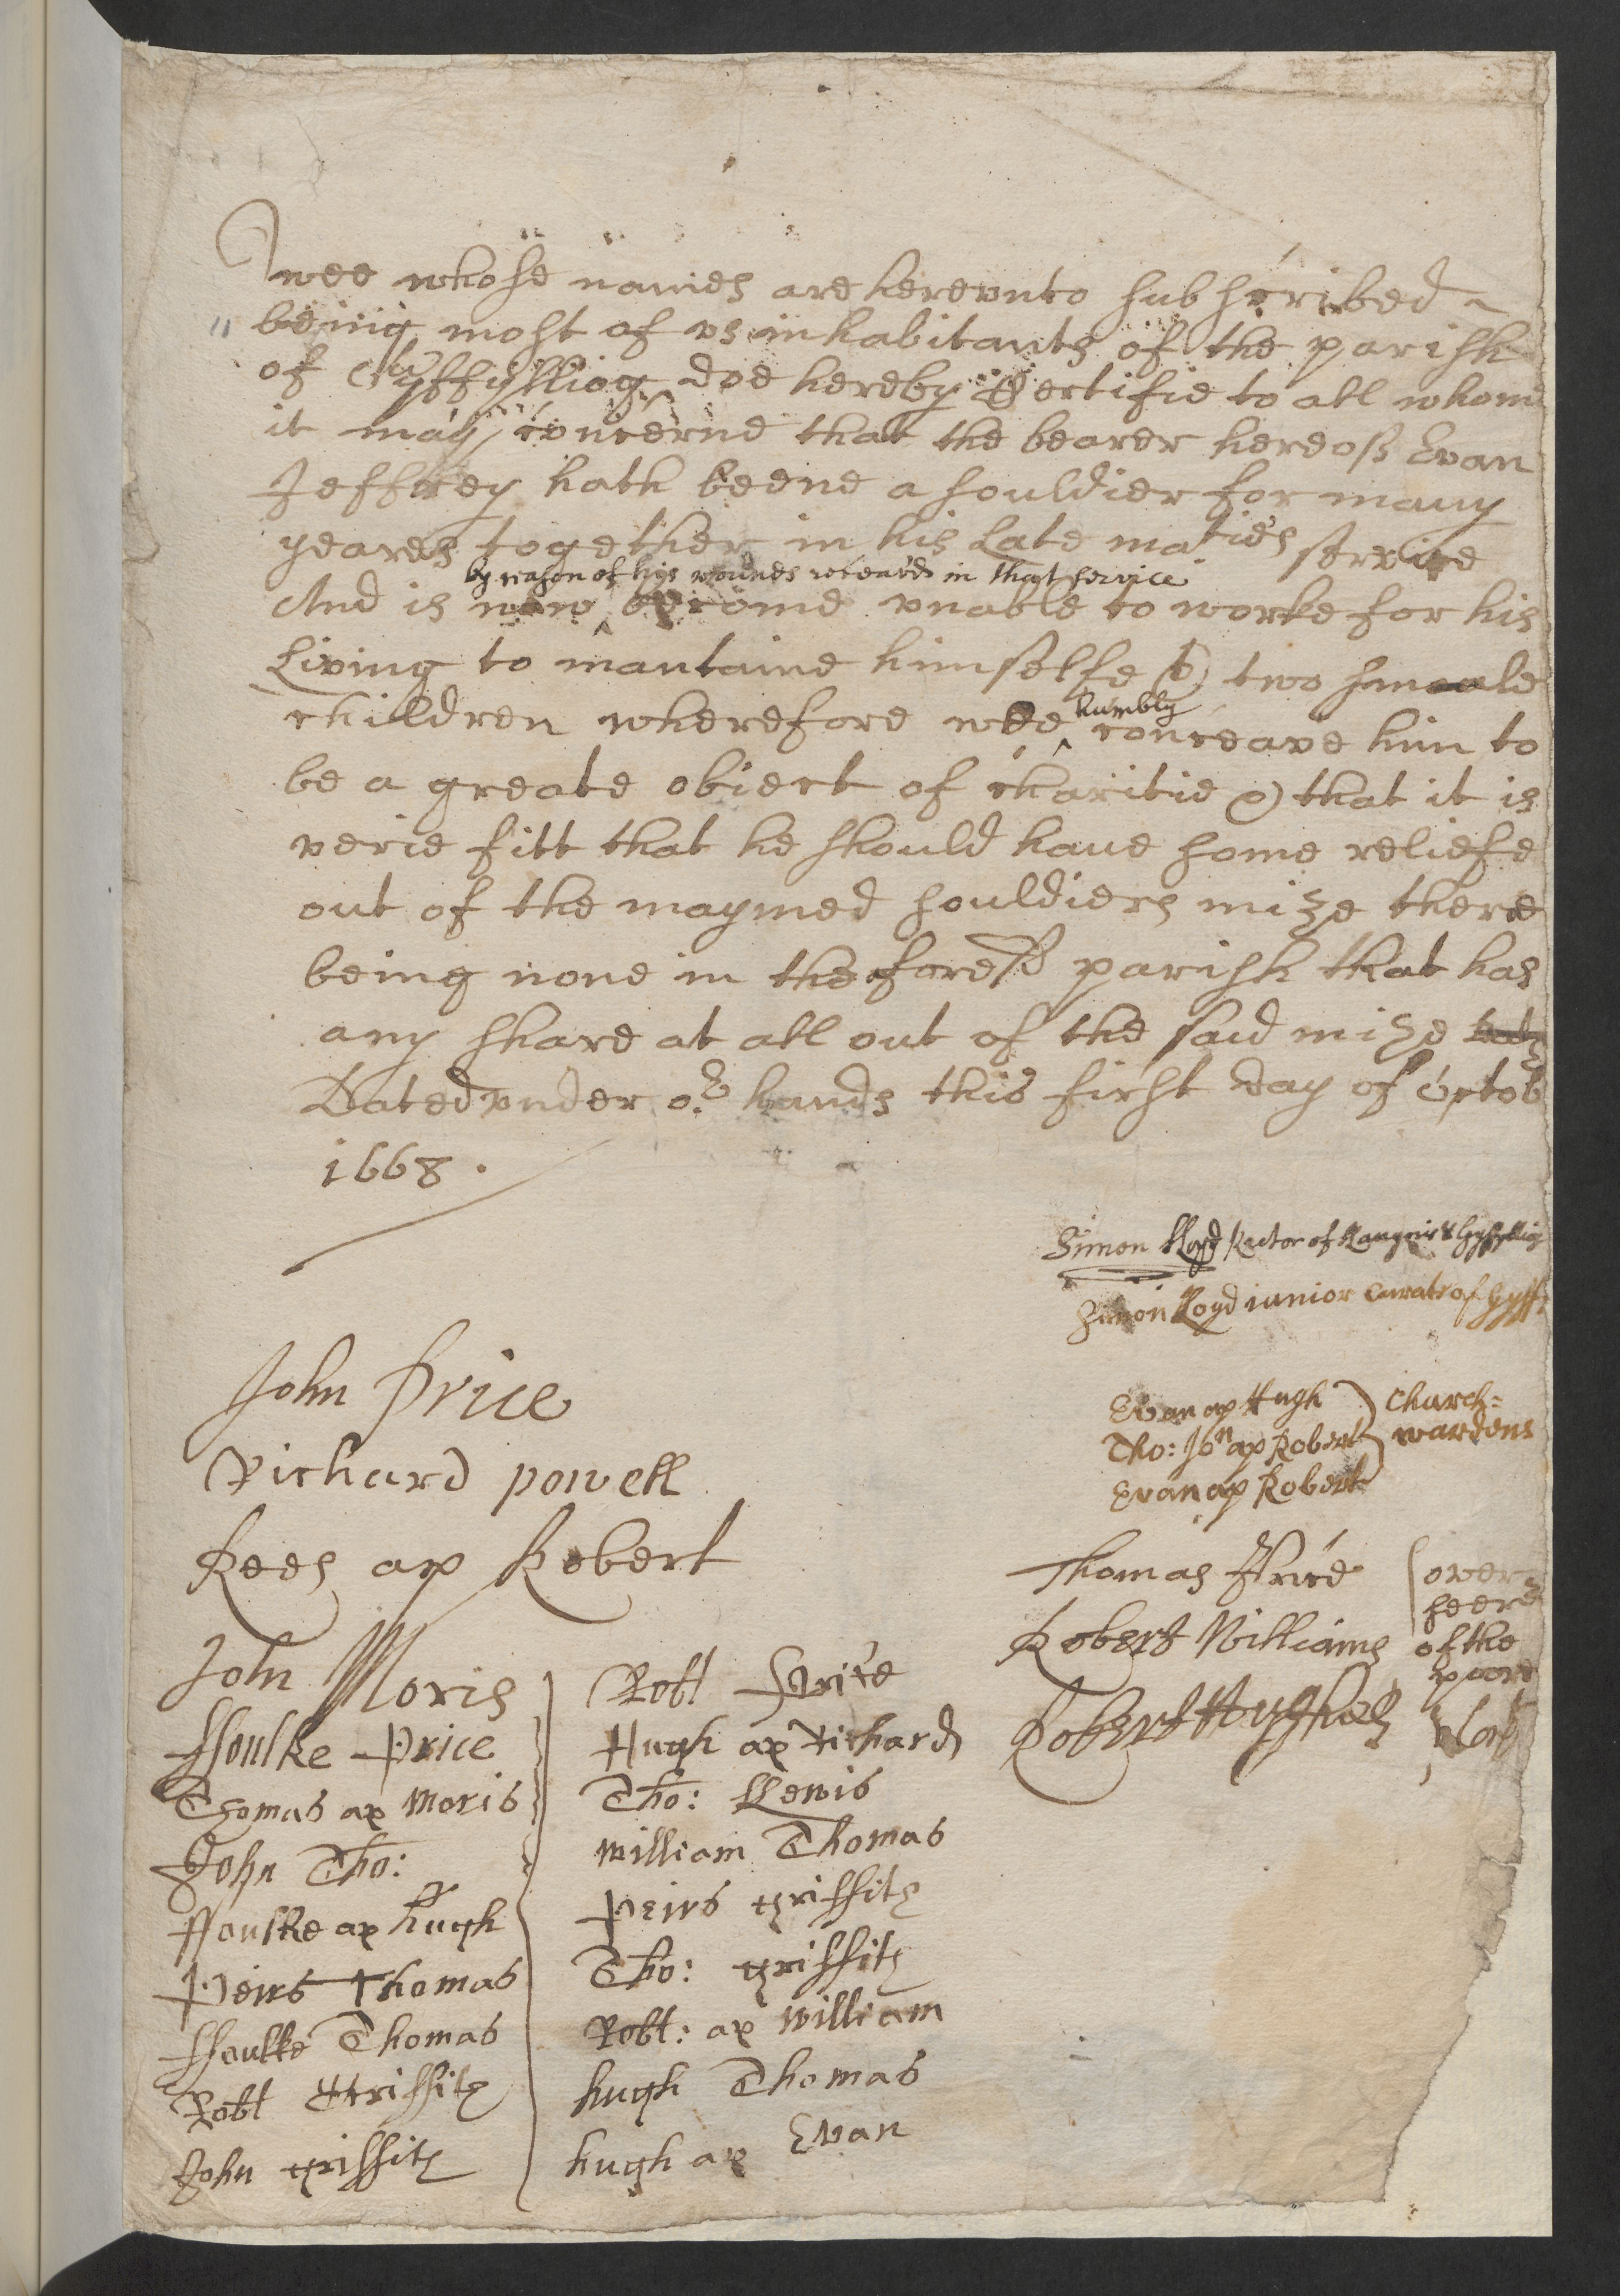 wee whose names are herevnto subscribed
being most of vs inhabitants of the parish
of Cyffylliog doe hereby Certifie to all whom
it may concerne that the bearer hereof Evan
Jeffrey hath beene a souldier for many
yeares together in his Late maties service
by reason of his wounds receaved in that service
And is now become vnable to worke for his
Living to mantaine himselfe & two smale
children wherefore wee humbly conceave him to
be a greate obiect of charitie & that it is
verie fitt that he should have some reliefe
out of the maymed souldiers mize there
being none in the foresd parish that has
any share at all out of the said mize
Dated vnder or hands this first day of octob
1668.
Simon lloyd Rector of llanynis & Gyffyllig
Simon lloyd iunior Curate of Gyff:
John Price
Richard powell
Rees ap Robert
Evan ap Hugh
Tho: Jon ap Robert
Evan ap Robert
Church=
wardens
Thomas Price
Robert Williams
Robert Hughes
over
seers
of the
poore
John Moris
ffoulke Price
Thomas ap Moris
John Tho:
ffoulke ap hugh
Peirs Thomas
ffoulke Thomas
Robt Griffith
John Griffith
Robt Price
Hugh ap Richard
Tho: llewis
William Thomas
Peirs Griffith
Tho: Griffith
Robt: ap William
hugh Thomas
hugh ap Evan